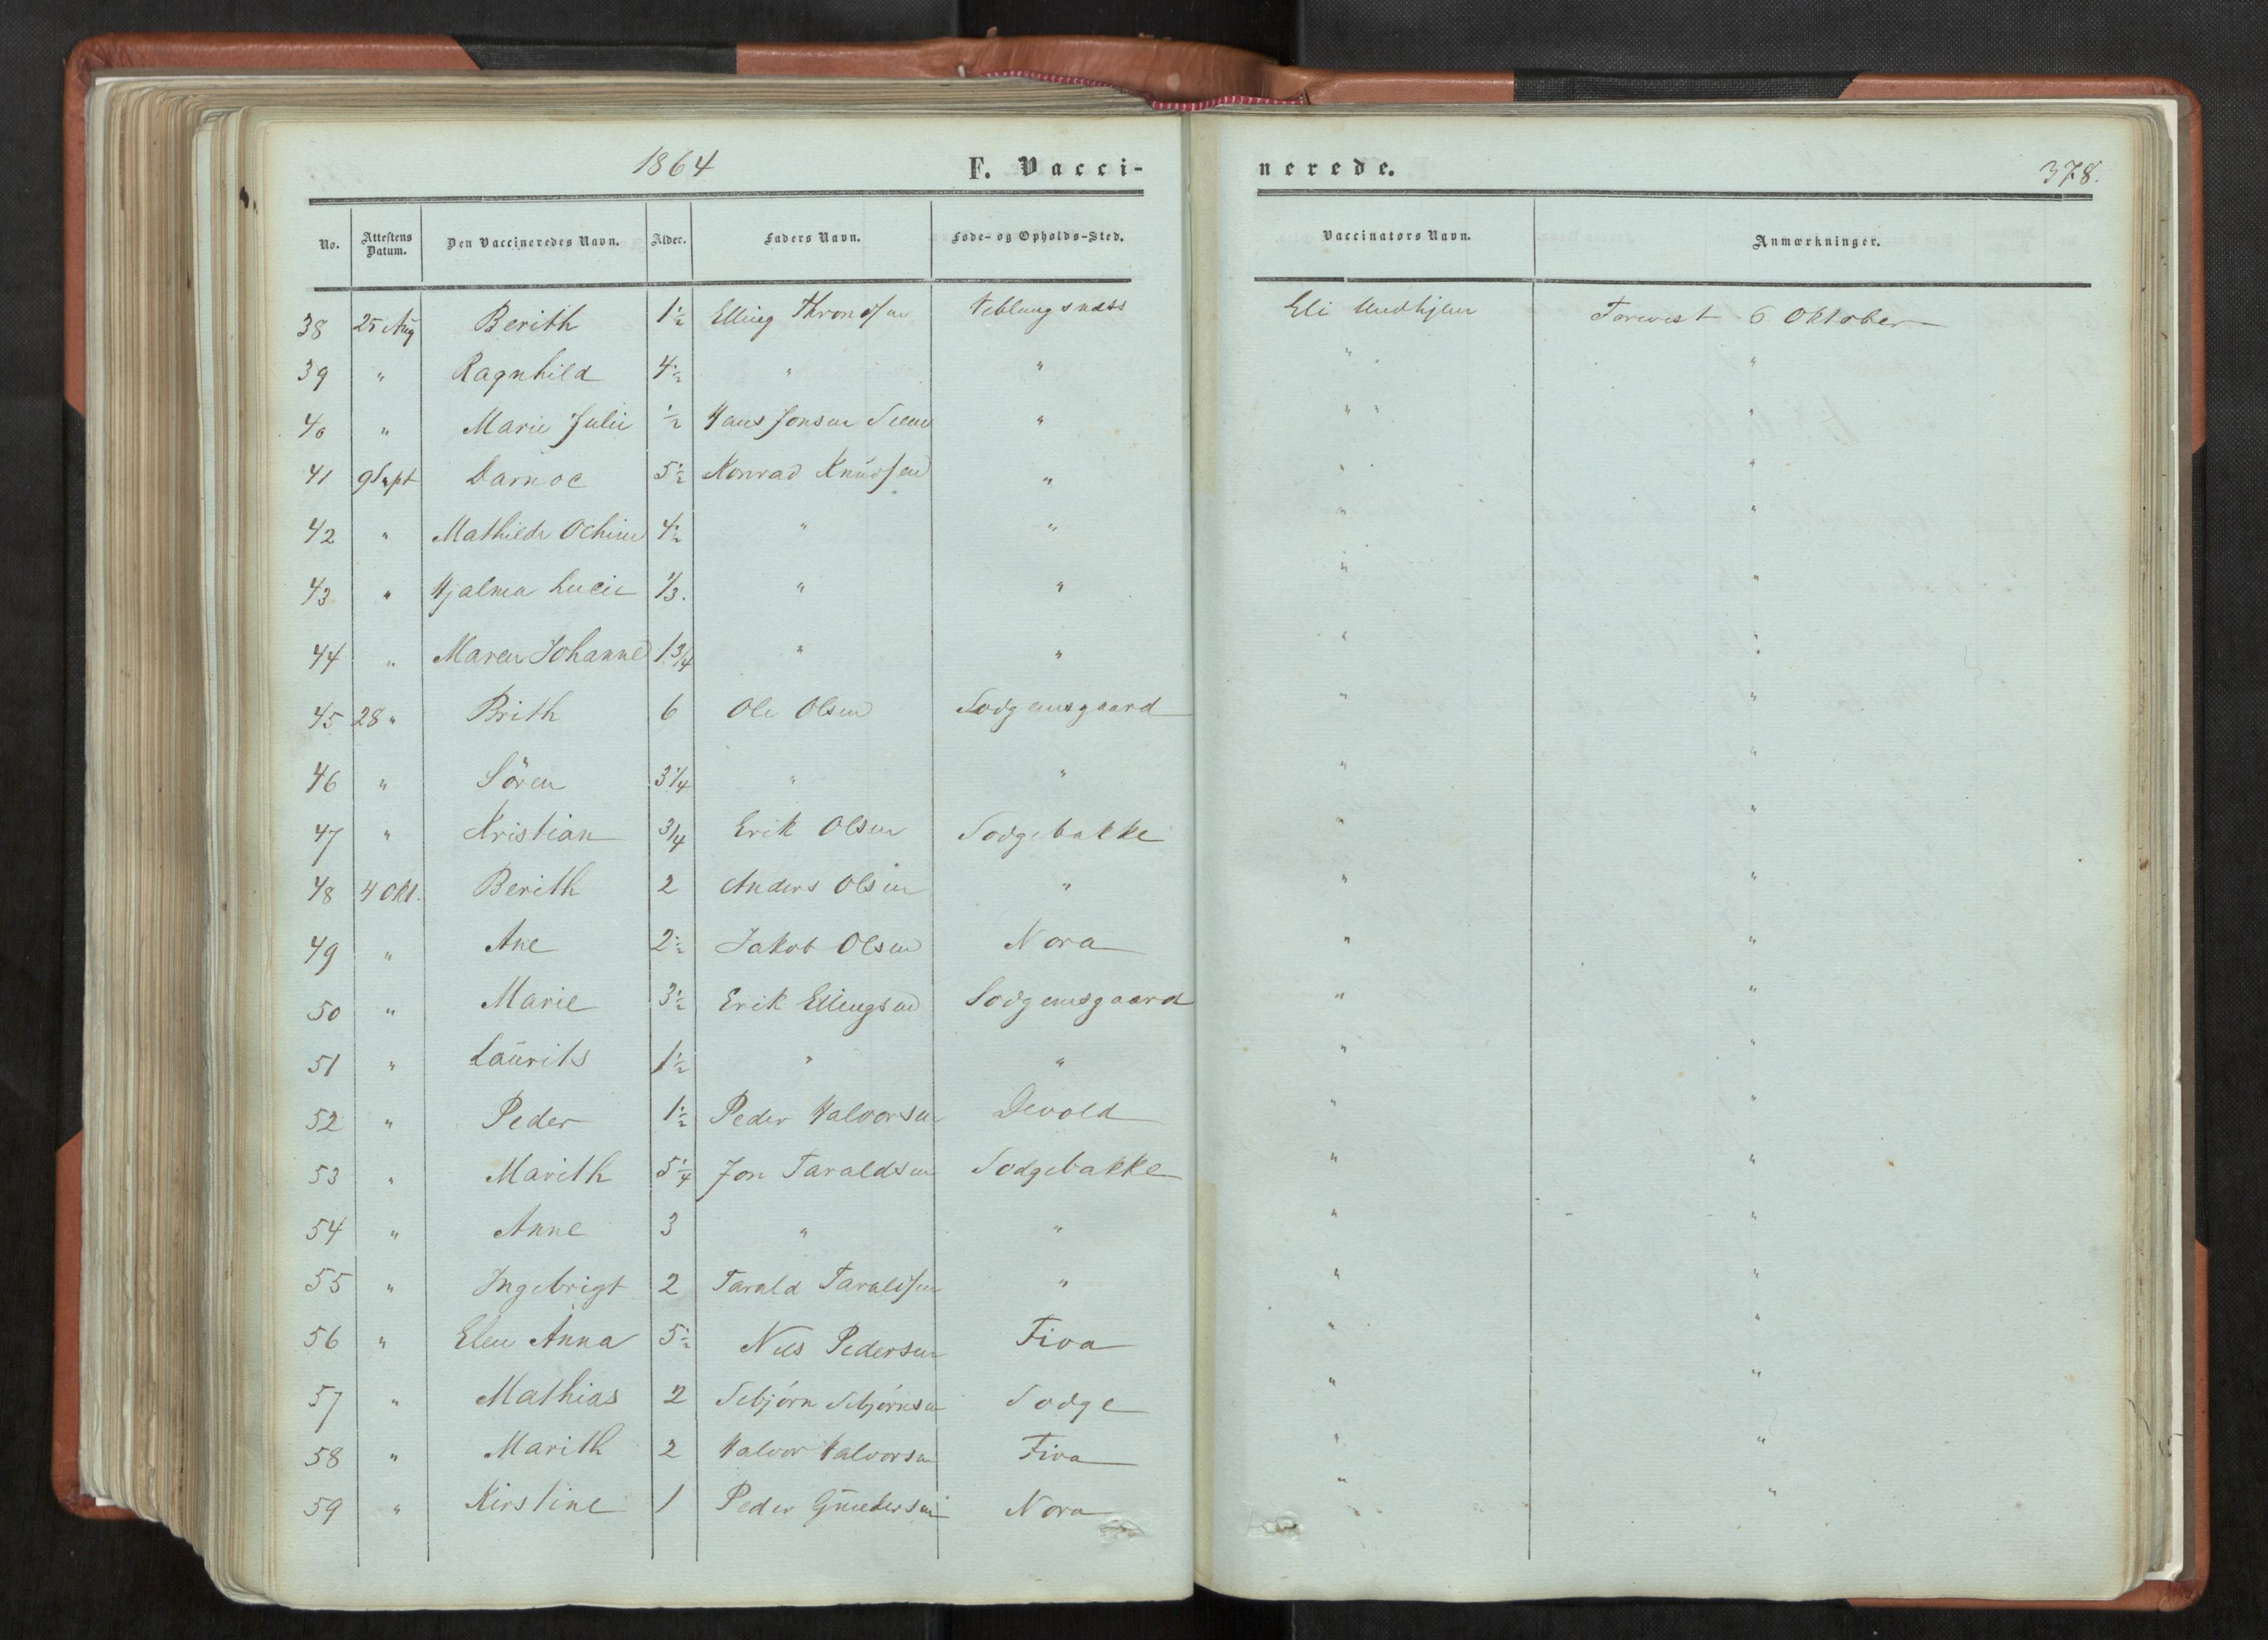 1864 F. Vacci- nerede. 378.
No. Attestens Datum. Den Vaccineredes Navn. Alder. Faders Navn. Føde- og Opholds-Sted. Vaccinators Navn. Anmærkninger.
38 25 Aug Berith 1½ Elling Throndsen Veblungsnæss Eli Undhjem Forevist 6 Oktober
39 " Ragnhild 4½ " " " "
40 " Marie Julie ½ Hans Jonsen " " "
41 9 Sept Darnoc 5½ Konrad Knudsen " " "
42 " Mathilde Ochine 4½ " " " "
43 " Hjalma Lucie 1/3. " " " "
44 " Maren Johanne 1 3/4 " " " "
45 28 " Brith 6 Ole Olsen Sodgemsgaard " "
46 " Sören 3 1/4 " " " "
47 " Kristian 3/4 Erik Olsen Sodgebakke " "
48 4 Okt. Berith 2 Anders Olsen " " "
49 " Ane 2½ Jakob Olsen Nora " "
50 " Marie 3½ Erik Ellingsen Sodgemsgaard " "
51 " Laurits 1½ " " " "
52 " Peder 1½ Peder Halvorsen Devold " "
53 " Marith 5 1/4 Jon Taraldsen Sodgebakke " "
54 " Anne 3 " " " "
55 " Ingebrigt 2 Tarald Taraldsen " " "
56 " Elen Anna 5½ Nils Pedersen Fiva " "
57 " Mathias 2 Sebjørn Sebjørnsen Sodge " "
58 " Marith 2 Halvor Halvorsen Fiva " "
59 " Kirstine 1 Peder Nora " "